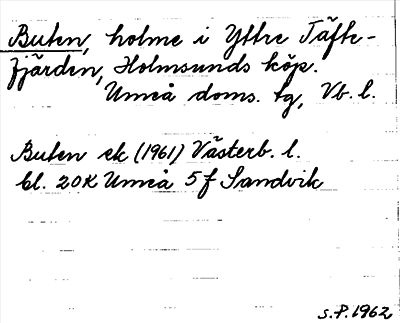 Buten, holme i Yttre Täfte-
fjärden, Holmsunds köp.
Umeå doms. tg, Vb. l.
Buten ek (1961) Västerb. l.
bl. 20K Umeå 5f Sandvik
S.P. 1962